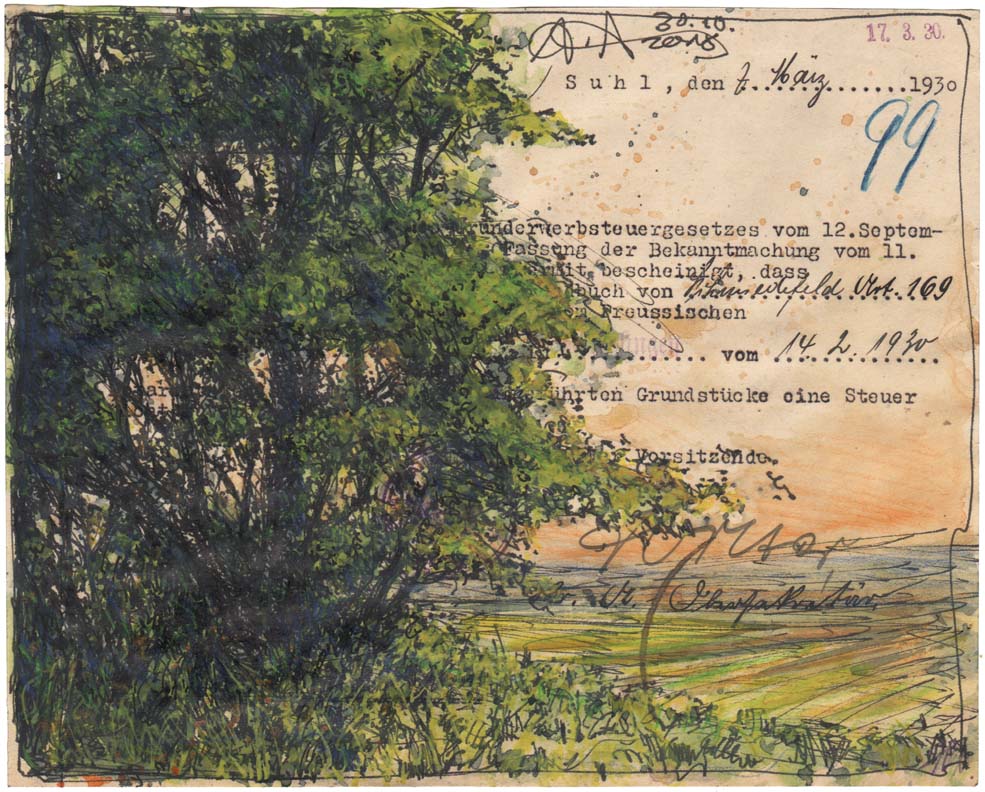 30.10.
2018
17. 3. 30.
Suhl, den 7. März 1930
99
runderwerbsteuergesetzes vom 12.Septem-
Fassung der Bekanntmachung vom 11.
rmit bescheinigt, dass
dbuch von Schmiedefeld Art. 169
Preussischen
vom 14. 2. 1930
ührten Grundstücke eine Steuer
Vorsitzende.